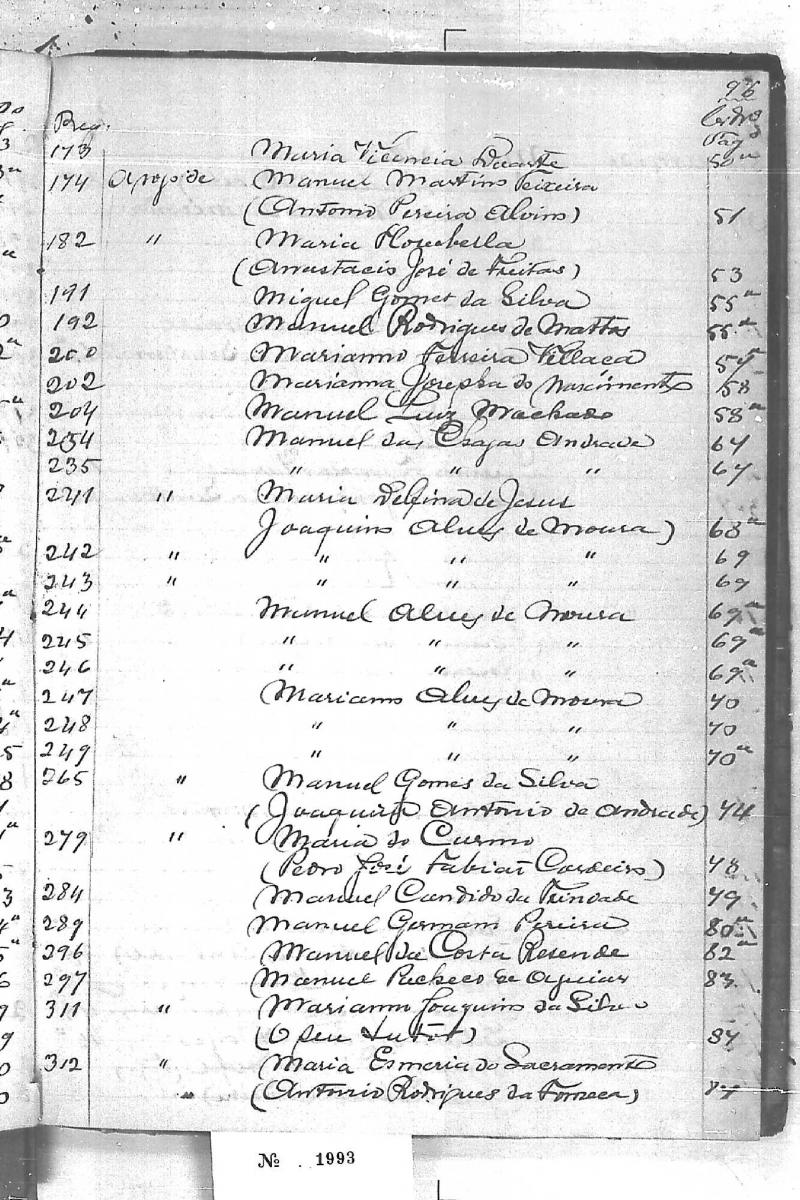 96
Reg. Livro
Pag
173 Maria Vicencia Duarte 50 v
174 Apogo de Manuel Martins Teixeira
(Antonio Pereira Alvins) 51
182 " Maria Florisbella
(Anastacio José de Freitas) 53
191 Miguel Gomes da Silva 55 v
192 Manuel Rodrigues de Mattos 55 v
200 Marianno Ferreira Villaca 57
202 Marianna Josepha do Nascimento 58
204 Manuel Luiz Machado 58 v
234 Manuel das Chagas Andrade 67
235 " " " 67
241 " Maria Delfina de Jesus
Joaquim Alves de Moura) 68 v
242 " " " " 69
243 " " " " 69
244 Manuel Alves de Moura 69 v
245 " " " 69 v
246 " " " 69 v
247 Marianno Alves de Moura 70
248 " " " 70
249 " " " 70 v
265 " Manuel Gomes da Silva
(Joaquim Antonio de Andrade) 74
279 " Maria do Carmo
(Pedro José Fabian Cordeiro) 78
284 Manuel Candido da Trindade 79
289 Manuel Germano Pereira 80 v
296 Manuel da Costa Resende 82 v
297 Manuel Pacheco de Aguiar 83
311 " Marianno Joaquim da Silva
(O seu tutor) 87
312 " Maria Esmeria do Sacramento
" (Antonio Rodrigues da Fonseca) 87
№ . 1993